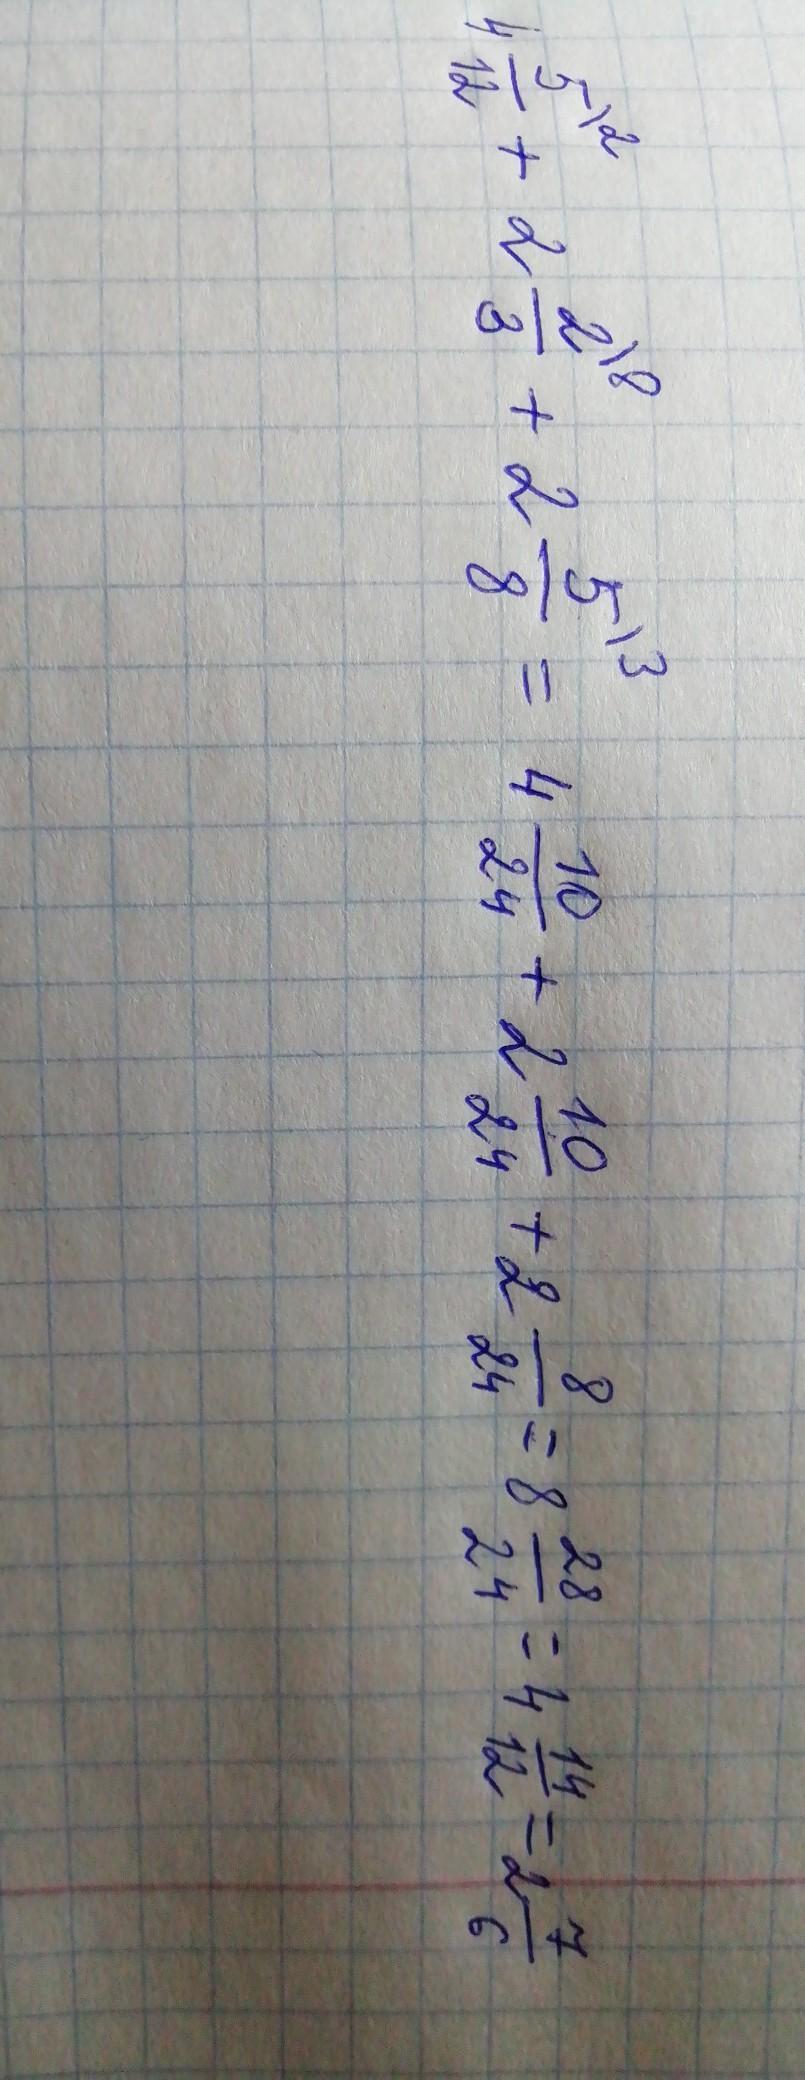 4 5\2/12 + 2 2\8/3 + 2 5\3/8 = 4 10/24 + 2 10/24 + 2 8/24 = 8 28/24 = 4 14/12 = 2 7/6